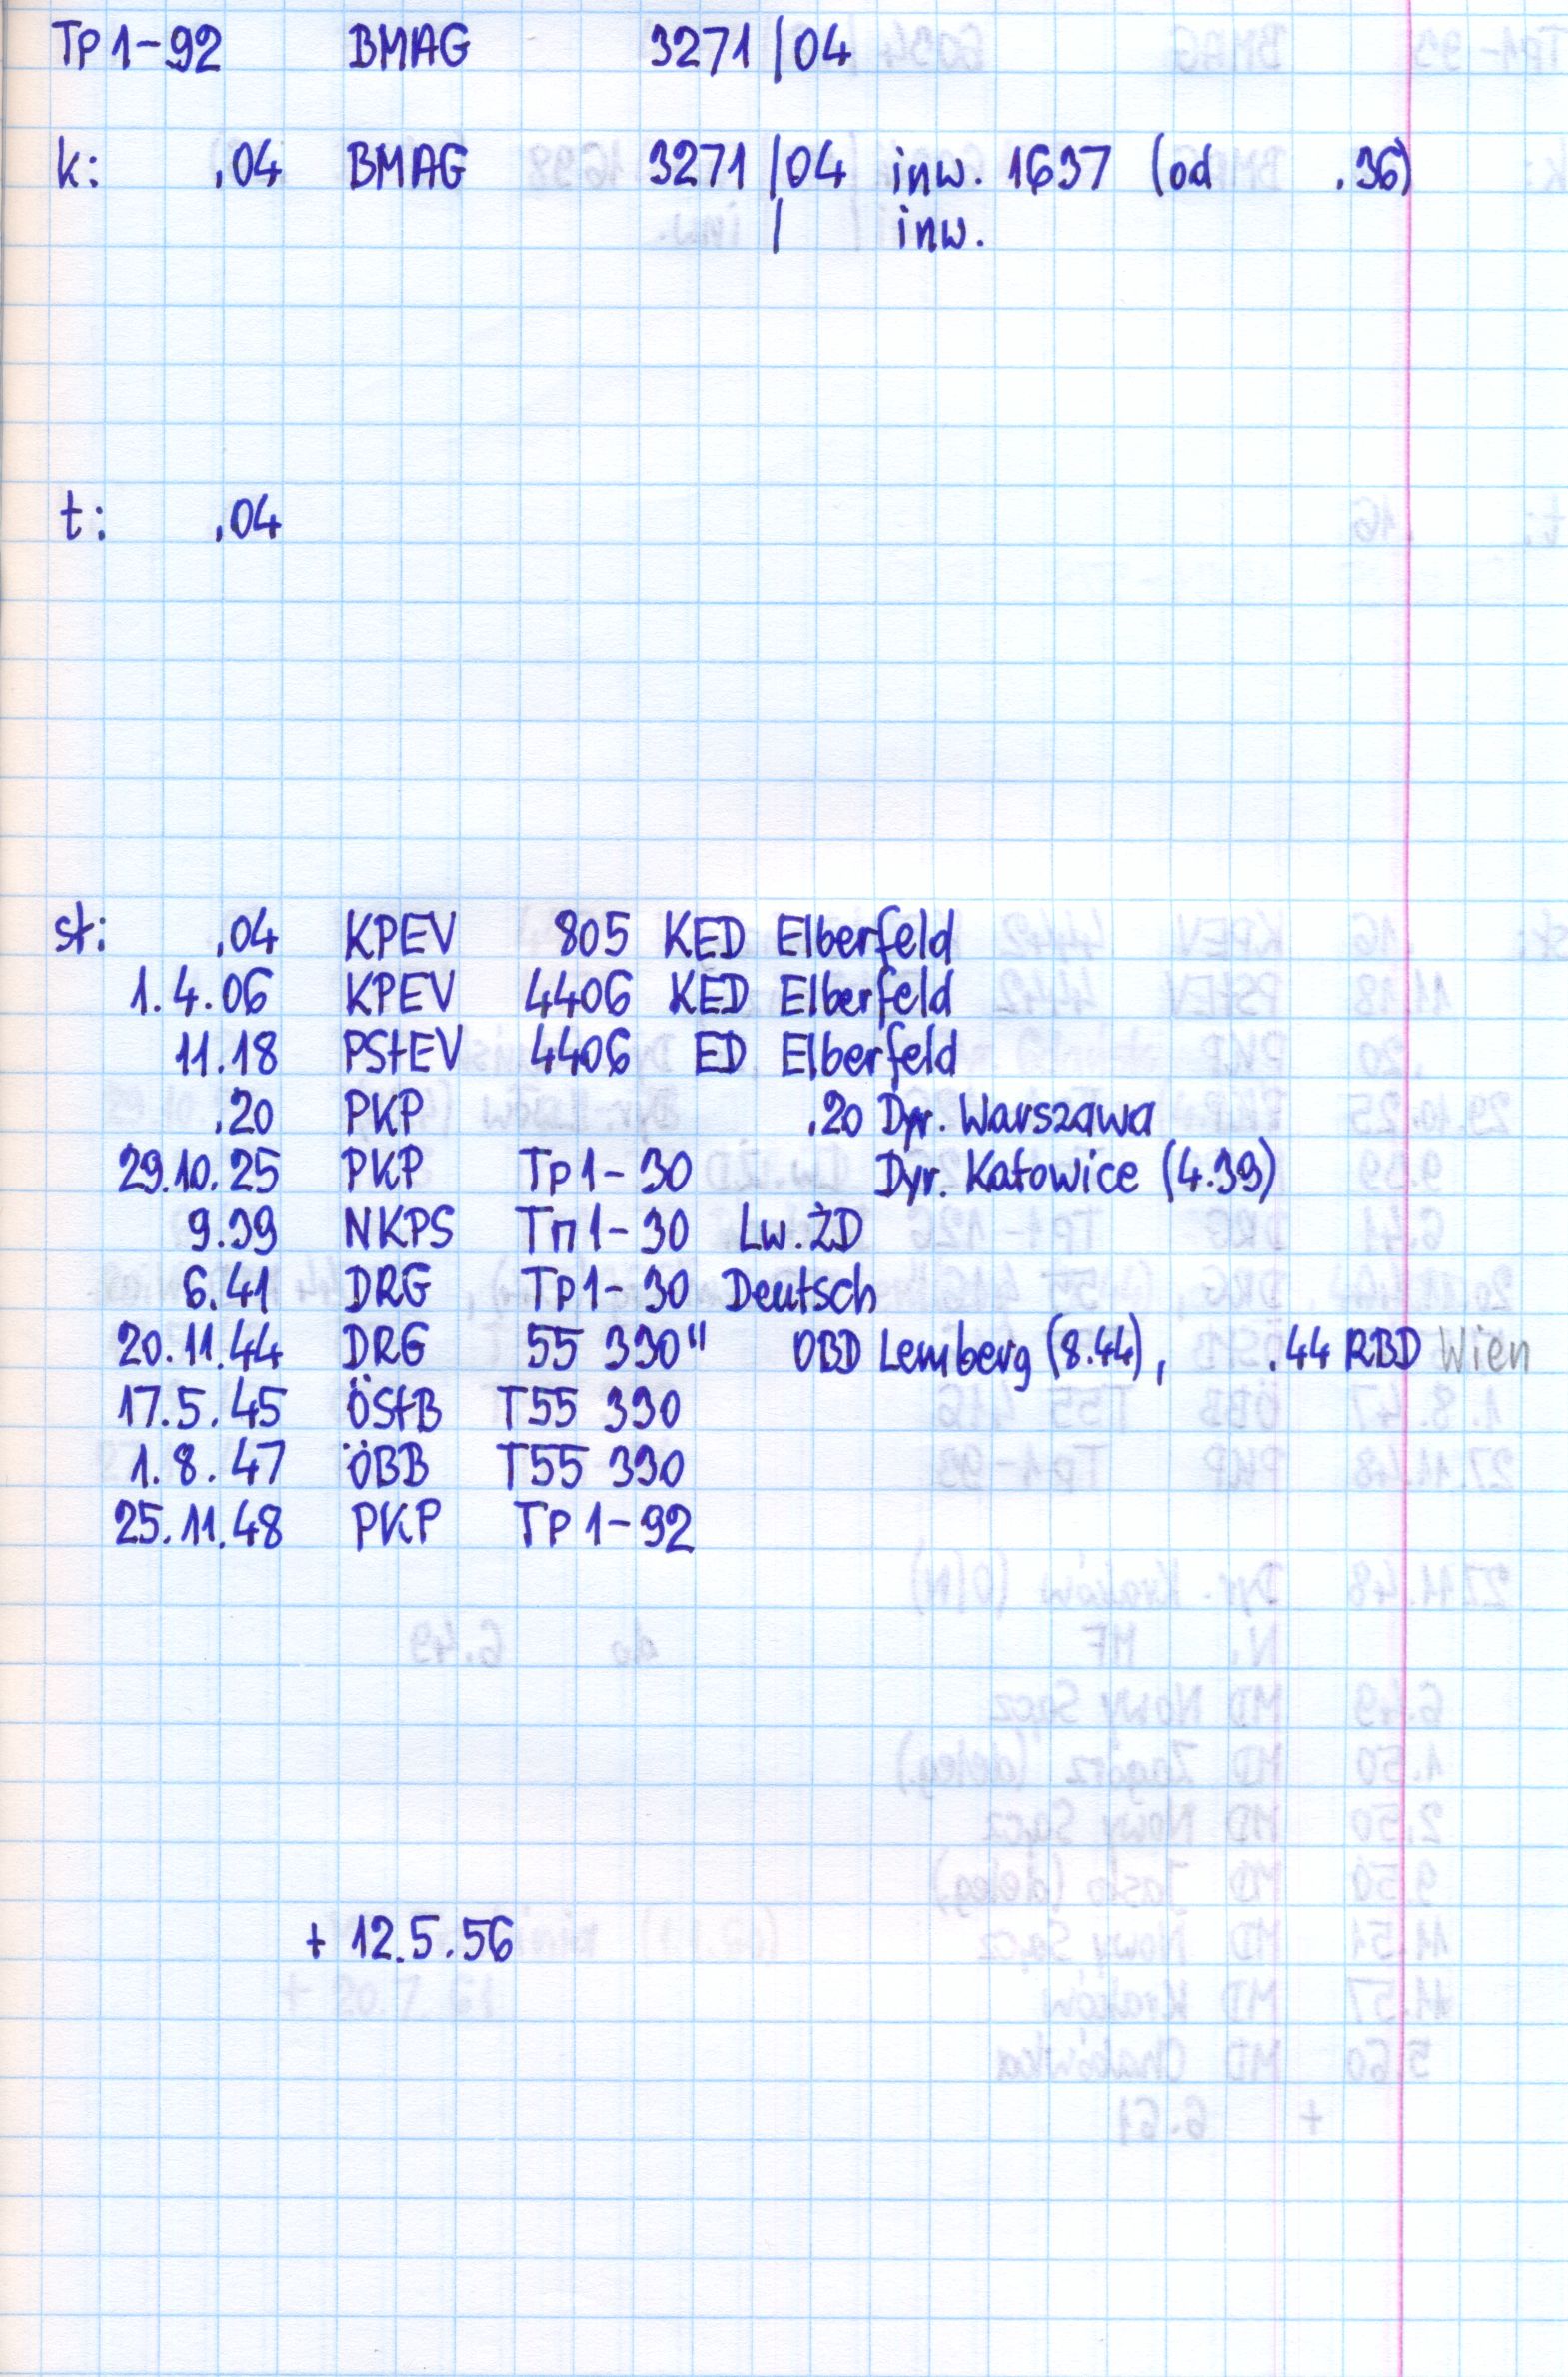 Tp1-92 BMAG 3271/04
k: .04 BMAG 3271/04 inw. 1637 (od .36)
/ inw.
t: .04
st: .04 KPEV 805 KED Elberfeld
1.4.06 KPEV 4406 KED Elberfeld
11.18 PStEV 4406 ED Elberfeld
.20 PKP .20 Dyr. Warszawa
29.10.25 PKP Tp1-30 Dyr. Katowice (4.39)
9.39 NKPS Тп1-30 Lw.ŻD
6.41 DRG Tp1-30 Deutsch
20.11.44 DRG 55 330" OBD Lemberg (8.44), .44 RBD Wien
17.5.45 ÖStB T55 330
1.8.47 ÖBB T55 330
25.11.48 PKP Tp1-92
+ 12.5.56